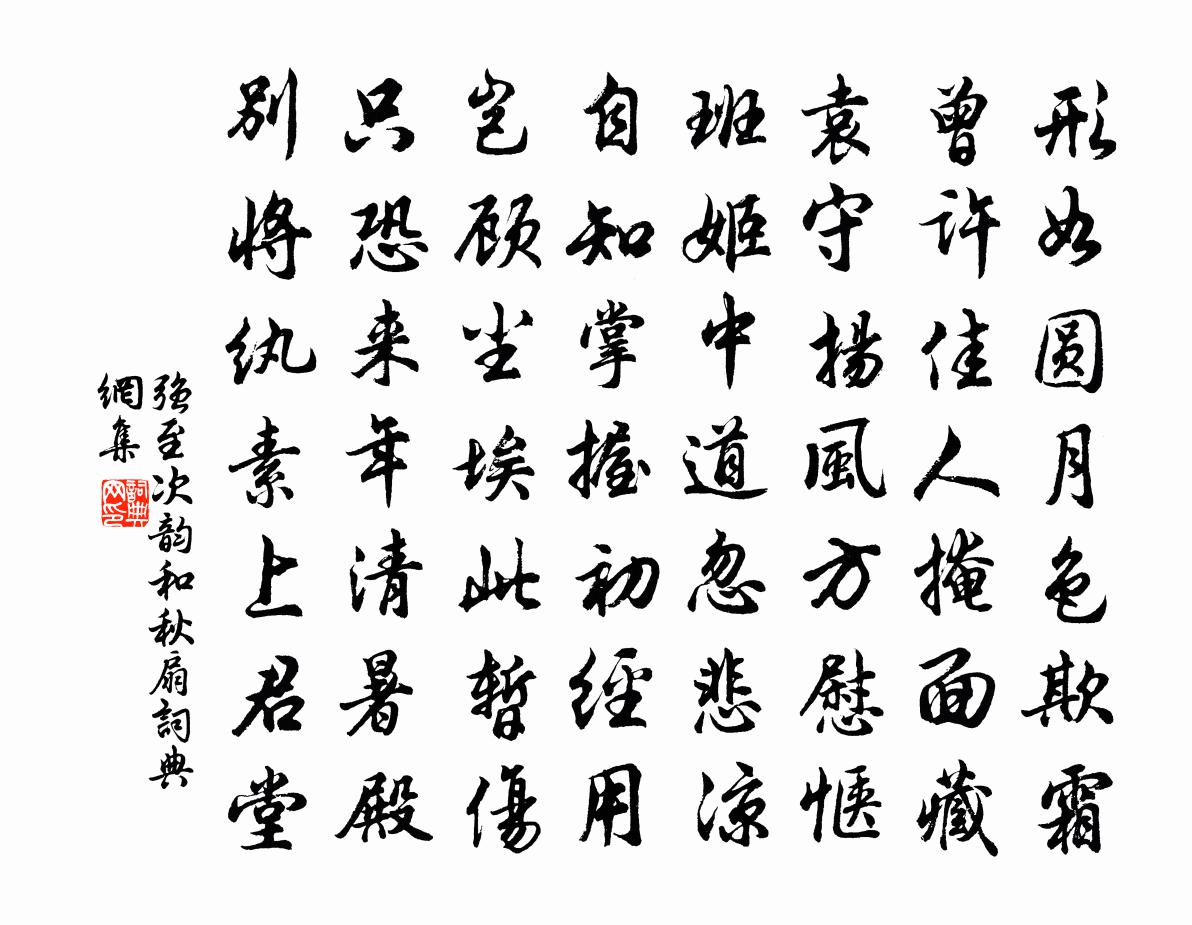 形如圆月色欺霜
曾许佳人掩面藏
袁守揚風方慰惬
班姬中道忽悲凉
自知掌握初经用
岂顾尘埃此暂傷
只恐来年清暑殿
别将纨素上君堂
强至次韵和秋扇詞典
網集
詞典网印